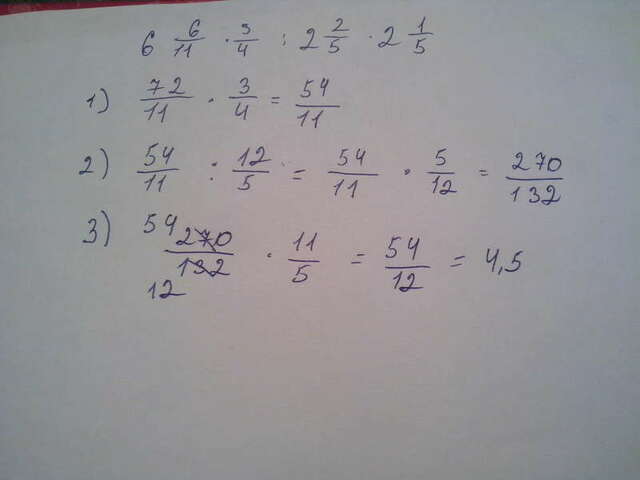 6 6/11 · 3/4 : 2 2/5 · 2 1/5
1) 72/11 · 3/4 = 54/11
2) 54/11 : 12/5 = 54/11 · 5/12 = 270/132
3) 54 270/132 12 · 11/5 = 54/12 = 4,5